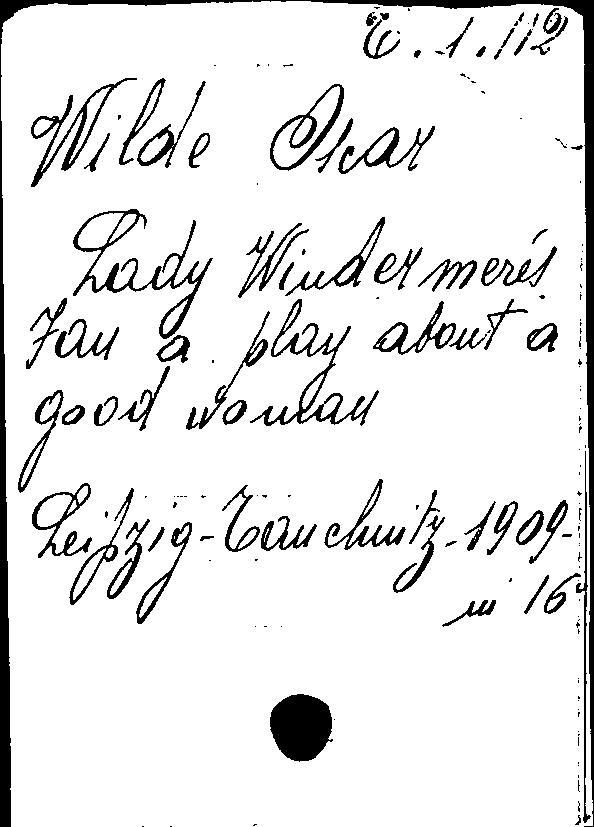 T. 1. 112
Wilde Oscar
Lady Windermere's
Fan a play about a
good woman
Leipzig - Tauchnitz - 1909 -
in 16°